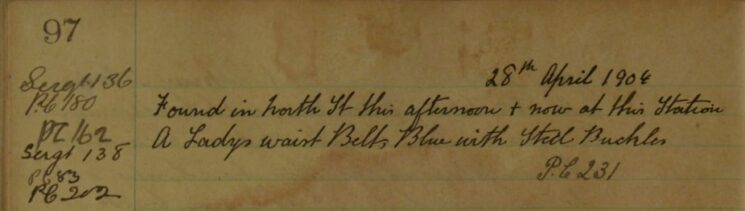 97
28th April 1904
Sergt 136
PC 180
Found in North St this afternoon + now at this Station
PC 162
A Ladys waist Belt, Blue with Steel Buckles
Sergt 138
PC 83
PC 231
PC 202